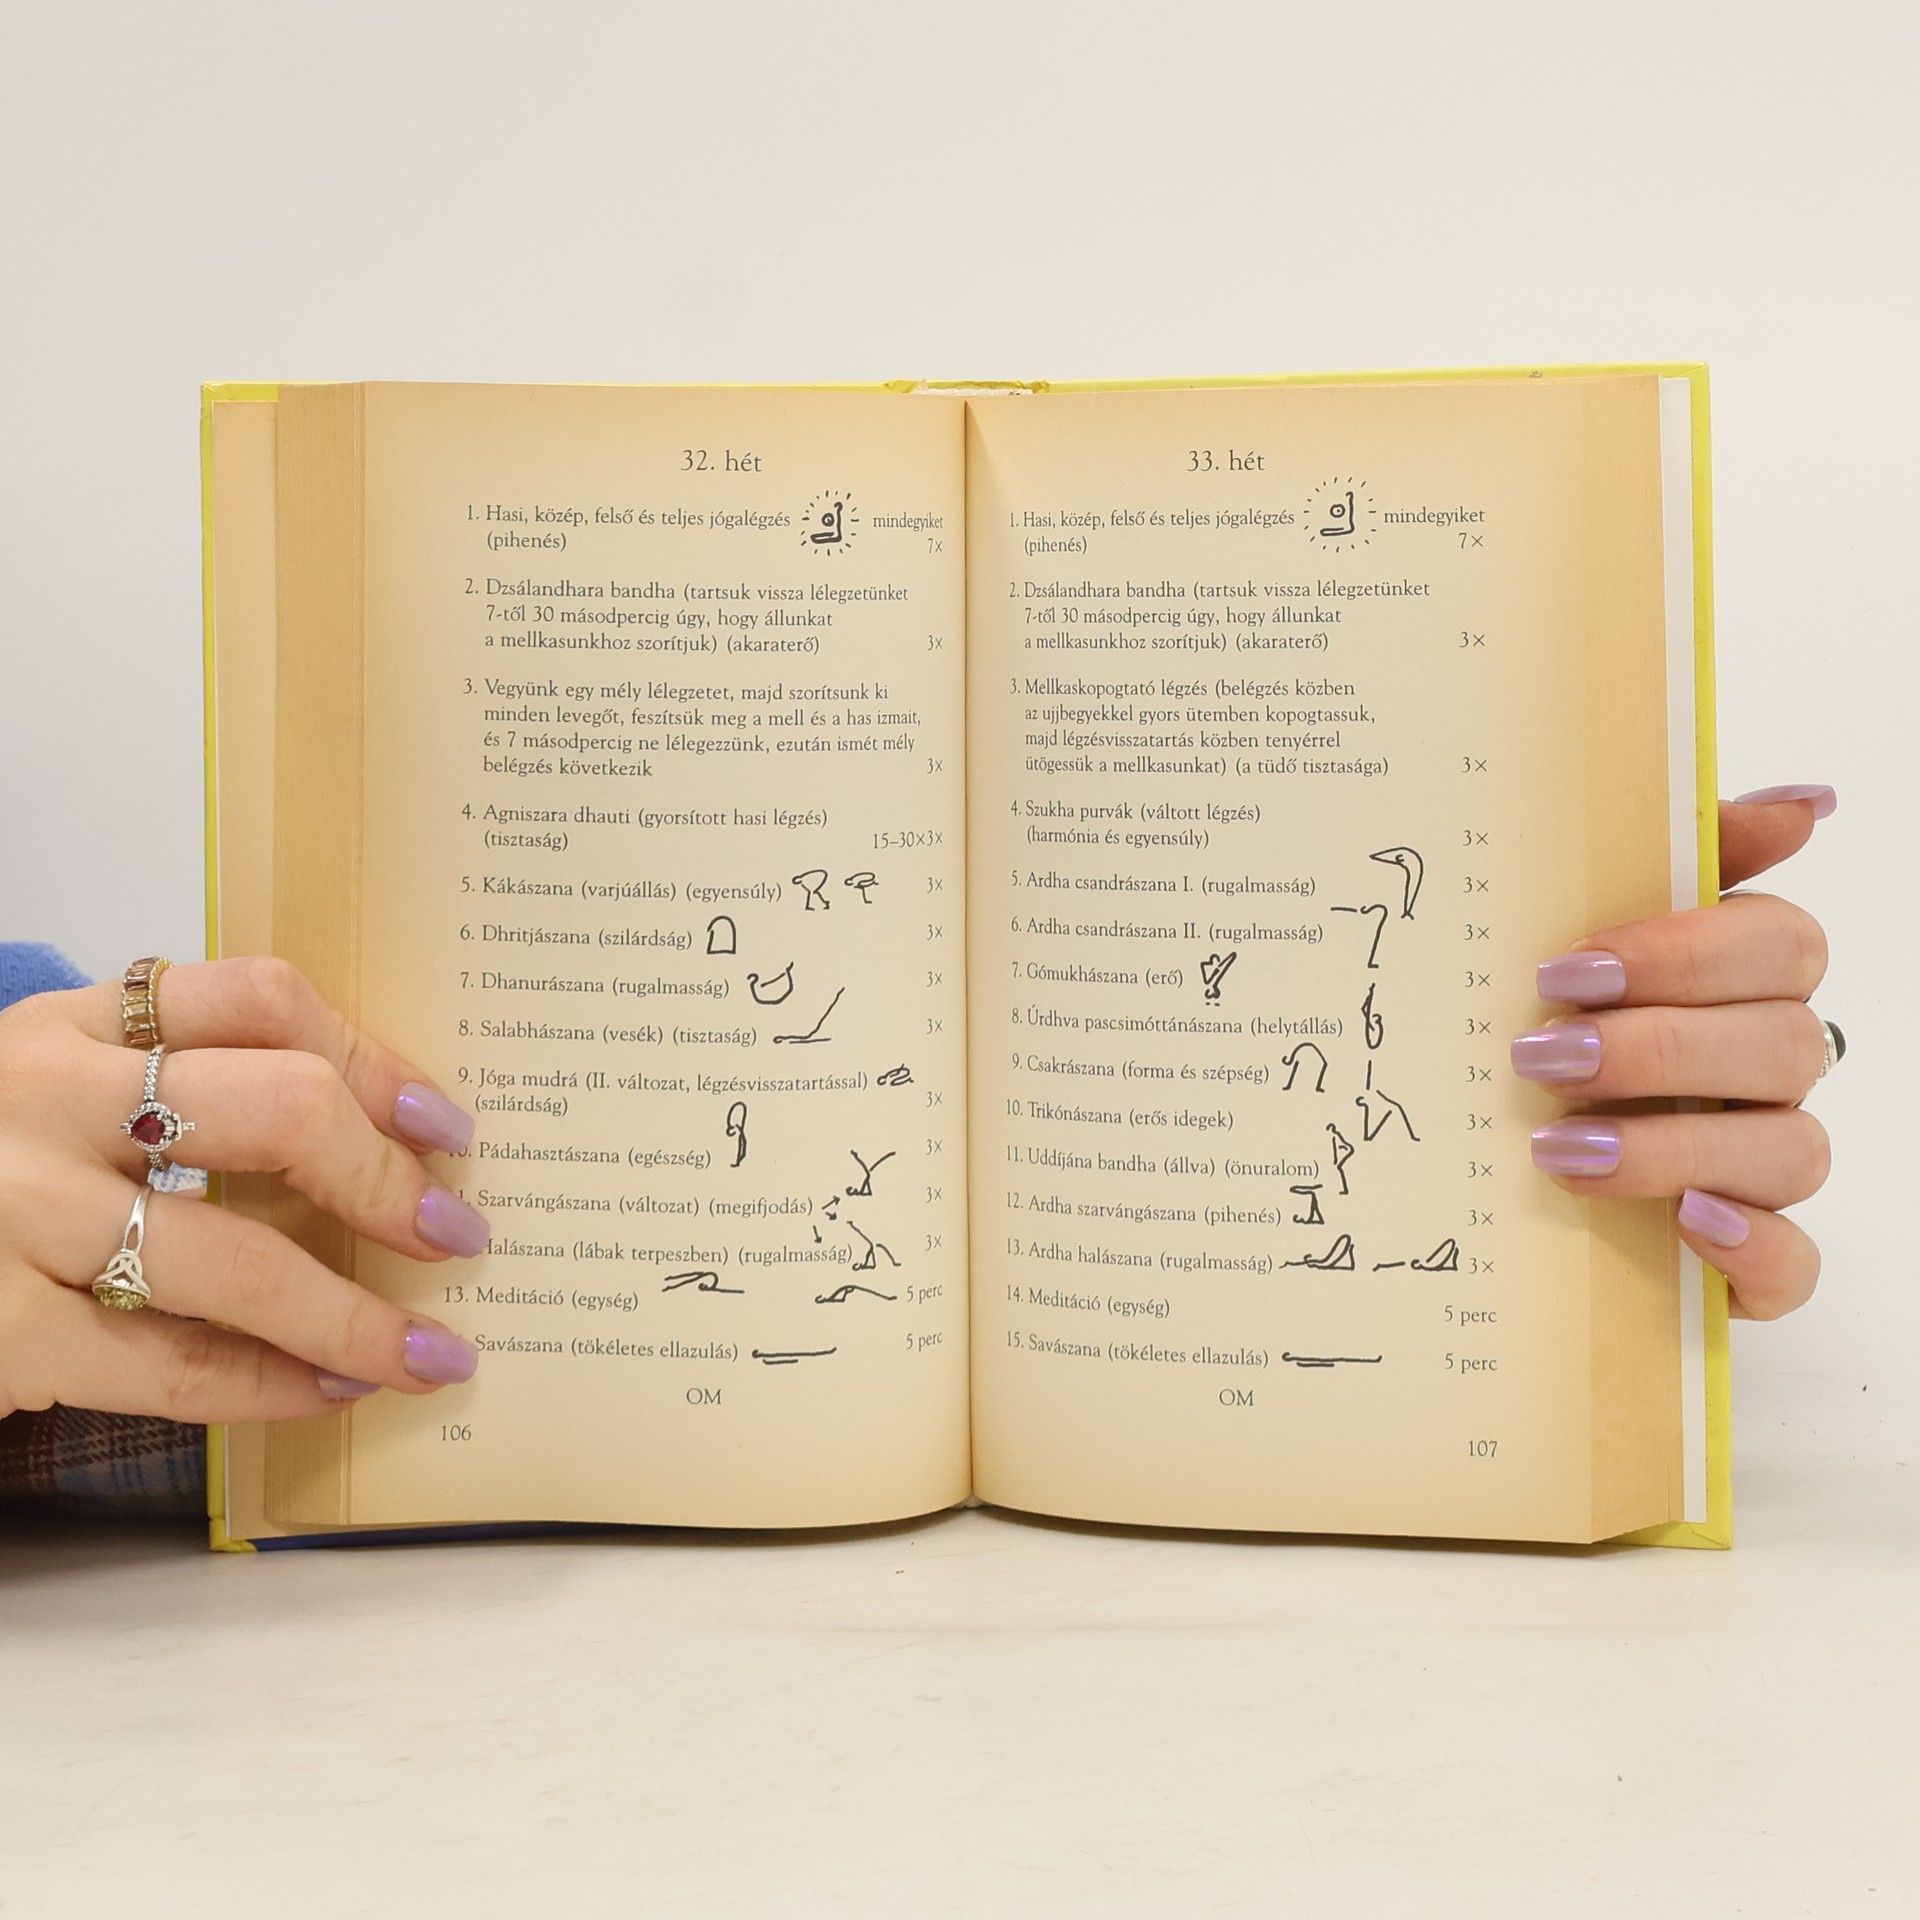 32. hét
1. Hasi, közép, felső és teljes jógalégzés mindegyiket
(pihenés) 7x
2. Dzsálandhara bandha (tartsuk vissza lélegzetünket
7-től 30 másodpercig úgy, hogy állunkat
a mellkasunkhoz szorítjuk) (akaraterő) 3x
3. Vegyünk egy mély lélegzetet, majd szorítsunk ki
minden levegőt, feszítsük meg a mell és a has izmait,
és 7 másodpercig ne lélegezzünk, ezután ismét mély
belégzés következik 3x
4. Agniszara dhauti (gyorsított hasi légzés)
(tisztaság) 15–30×3x
5. Kákászana (varjúállás) (egyensúly) 3x
6. Dhritjászana (szilárdság) 3x
7. Dhanurászana (rugalmasság) 3x
8. Salabhászana (vesék) (tisztaság) 3x
9. Jóga mudrá (II. változat, légzésvisszatartással)
(szilárdság) 3x
Pádahasztászana (egészség) 3x
Szarvángászana (változat) (megifjodás) 3x
Halászana (lábak terpeszben) (rugalmasság) 3x
13. Meditáció (egység) 5 perc
Savászana (tökéletes ellazulás) 5 perc
OM
106
33. hét
1. Hasi, közép, felső és teljes jógalégzés mindegyiket
(pihenés) 7×
2. Dzsálandhara bandha (tartsuk vissza lélegzetünket
7-től 30 másodpercig úgy, hogy állunkat
a mellkasunkhoz szorítjuk) (akaraterő) 3×
3. Mellkaskopogtató légzés (belégzés közben
az ujjbegyekkel gyors ütemben kopogtassuk,
majd légzésvisszatartás közben tenyérrel
ütögessük a mellkasunkat) (a tüdő tisztasága) 3×
4. Szukha purvák (váltott légzés)
(harmónia és egyensúly) 3×
5. Ardha csandrászana I. (rugalmasság) 3×
6. Ardha csandrászana II. (rugalmasság) 3×
7. Gómukhászana (erő) 3×
8. Úrdhva pascsimóttánászana (helytállás) 3×
9. Csakrászana (forma és szépség) 3×
10. Trikónászana (erős idegek) 3×
11. Uddíjána bandha (állva) (önuralom) 3×
12. Ardha szarvángászana (pihenés) 3×
13. Ardha halászana (rugalmasság) 3×
14. Meditáció (egység) 5 perc
15. Savászana (tökéletes ellazulás) 5 perc
OM
107